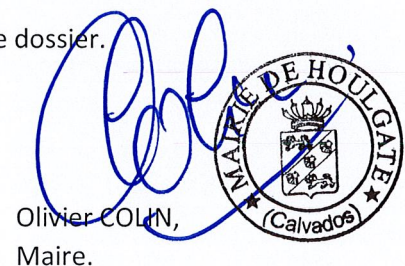 e dossier.
MAIRIE DE HOULGATE
(Calvados)
Olivier COLIN,
Maire.